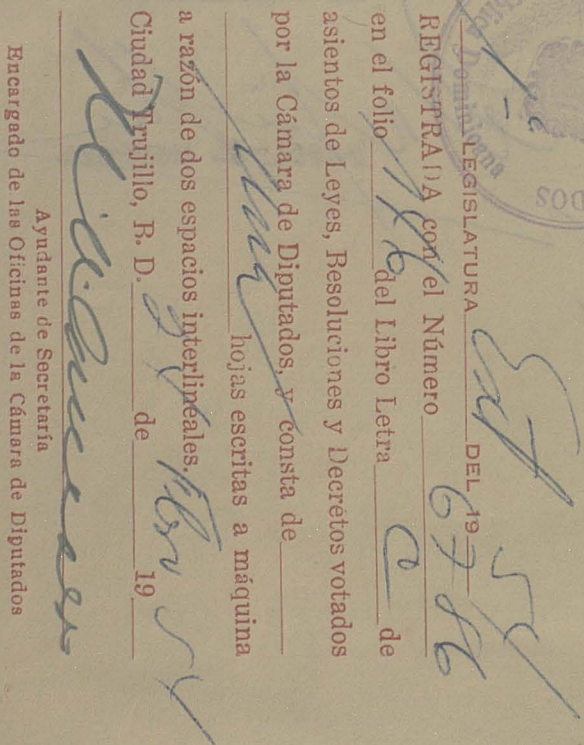 1ra LEGISLATURA Ext DEL 1954
REGISTRADA con el Número 6786
en el folio 186 del Libro Letra C de
asientos de Leyes, Resoluciones y Decretos votados
por la Cámara de Diputados, y consta de
una hojas escritas a máquina
a razón de dos espacios interlineales.
Ciudad Trujillo, R. D. de 1954
Ayudante de Secretaría
Encargado de las Oficinas de la Cámara de Diputados
Dominicana
DOS